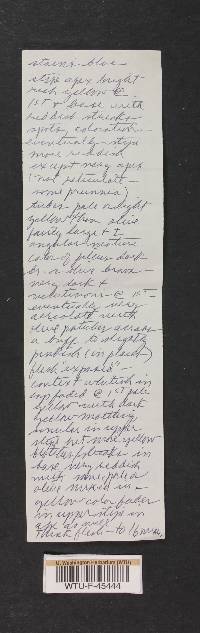 stains blue
stipe apex bright
rich yellow @
1st & base with
reddish streaks
spots, coloration
eventually stipe
more reddish
except very apex
(not reticulate
some pruinia)
tubes pale or light
yellow then olive
fairly large & I
angular mixture
color of pileus dark
br. or olive brown
very dark &
velutinous @ 1st
eventually very
areolate with
olive patches across
a buff to slightly
pinkish (in places)
flesh exposed
context whitish in
cap faded @ 1st pale
yellow with dark
yellow mottling
similar in upper
stipe but more yellow
blotches streaks in
base very reddish
with more pale
olive mixed in
yellow color fades
in upper stipe in
age as well
thick flesh to 16 mm,
U. Washington Herbarium (WTU)
WTU-F-45444